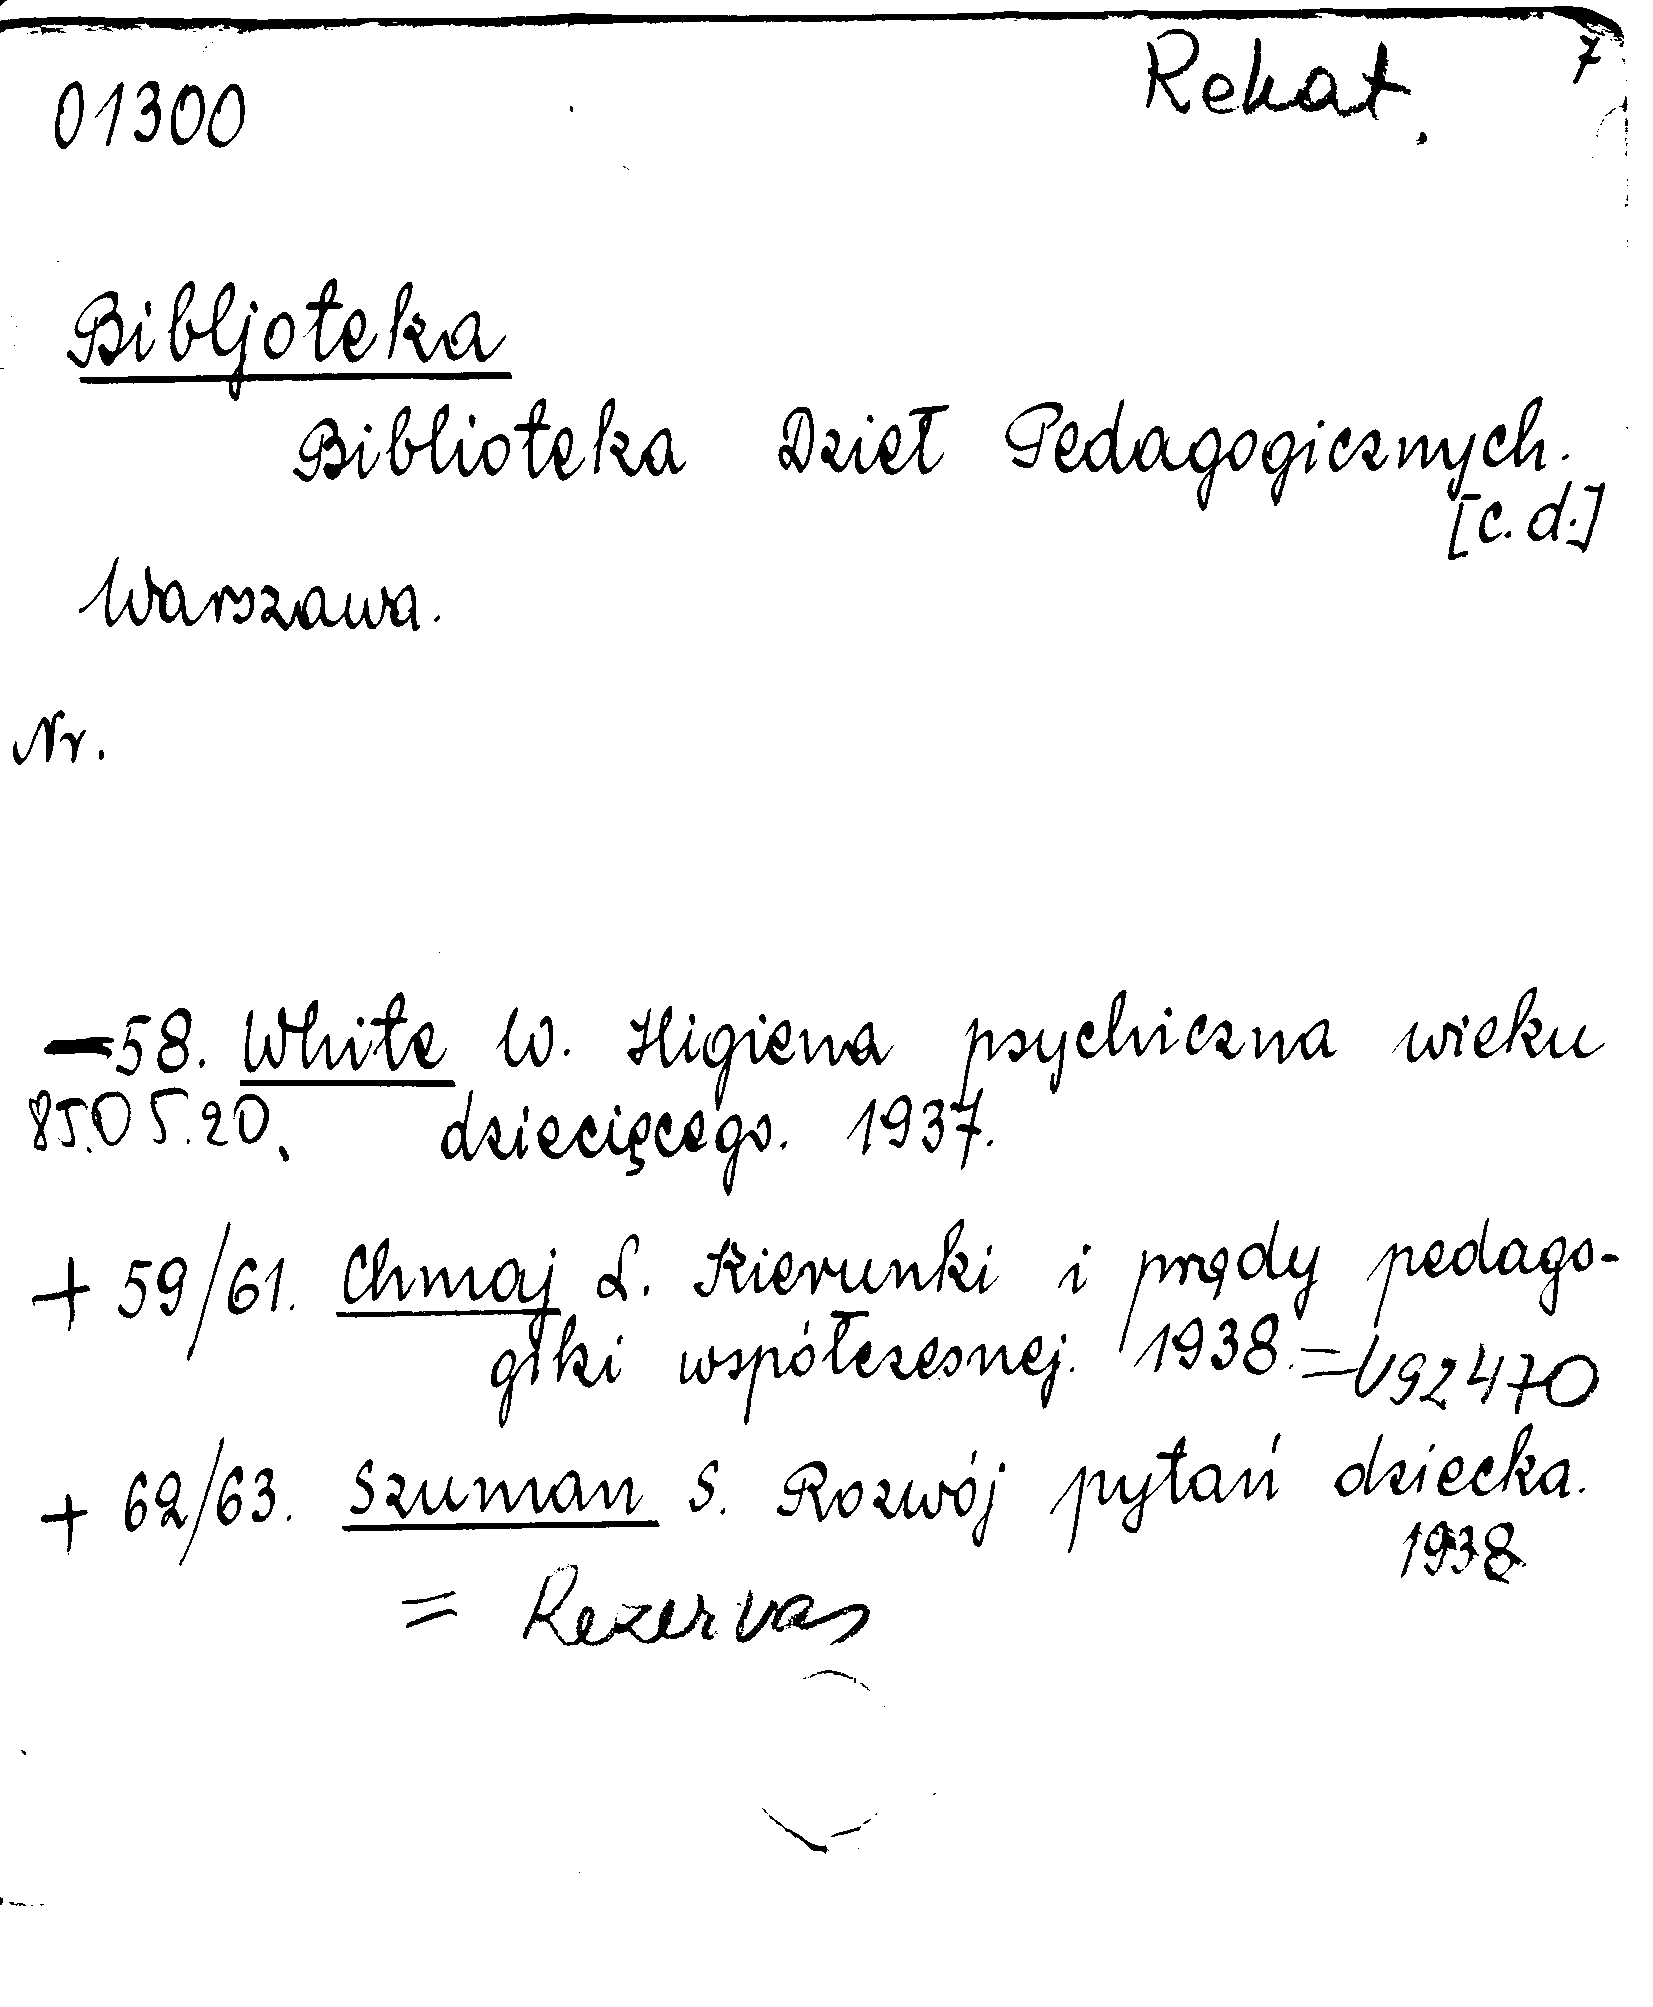 01300 Rekat. 7
Bibljoteka
Biblioteka Dzieł Pedagogicznych.
[c.d.]
Warszawa.
Nr.
—58. White W. Higiena psychiczna wieku
85.05.20. dziecięcego. 1937.
+ 59/61. Chmaj L. Kierunki i prądy pedago-
giki współczesnej. 1938. = U92470
+ 62/63. Szuman S. Rozwój pytań dziecka.
1938
= Rezerwas